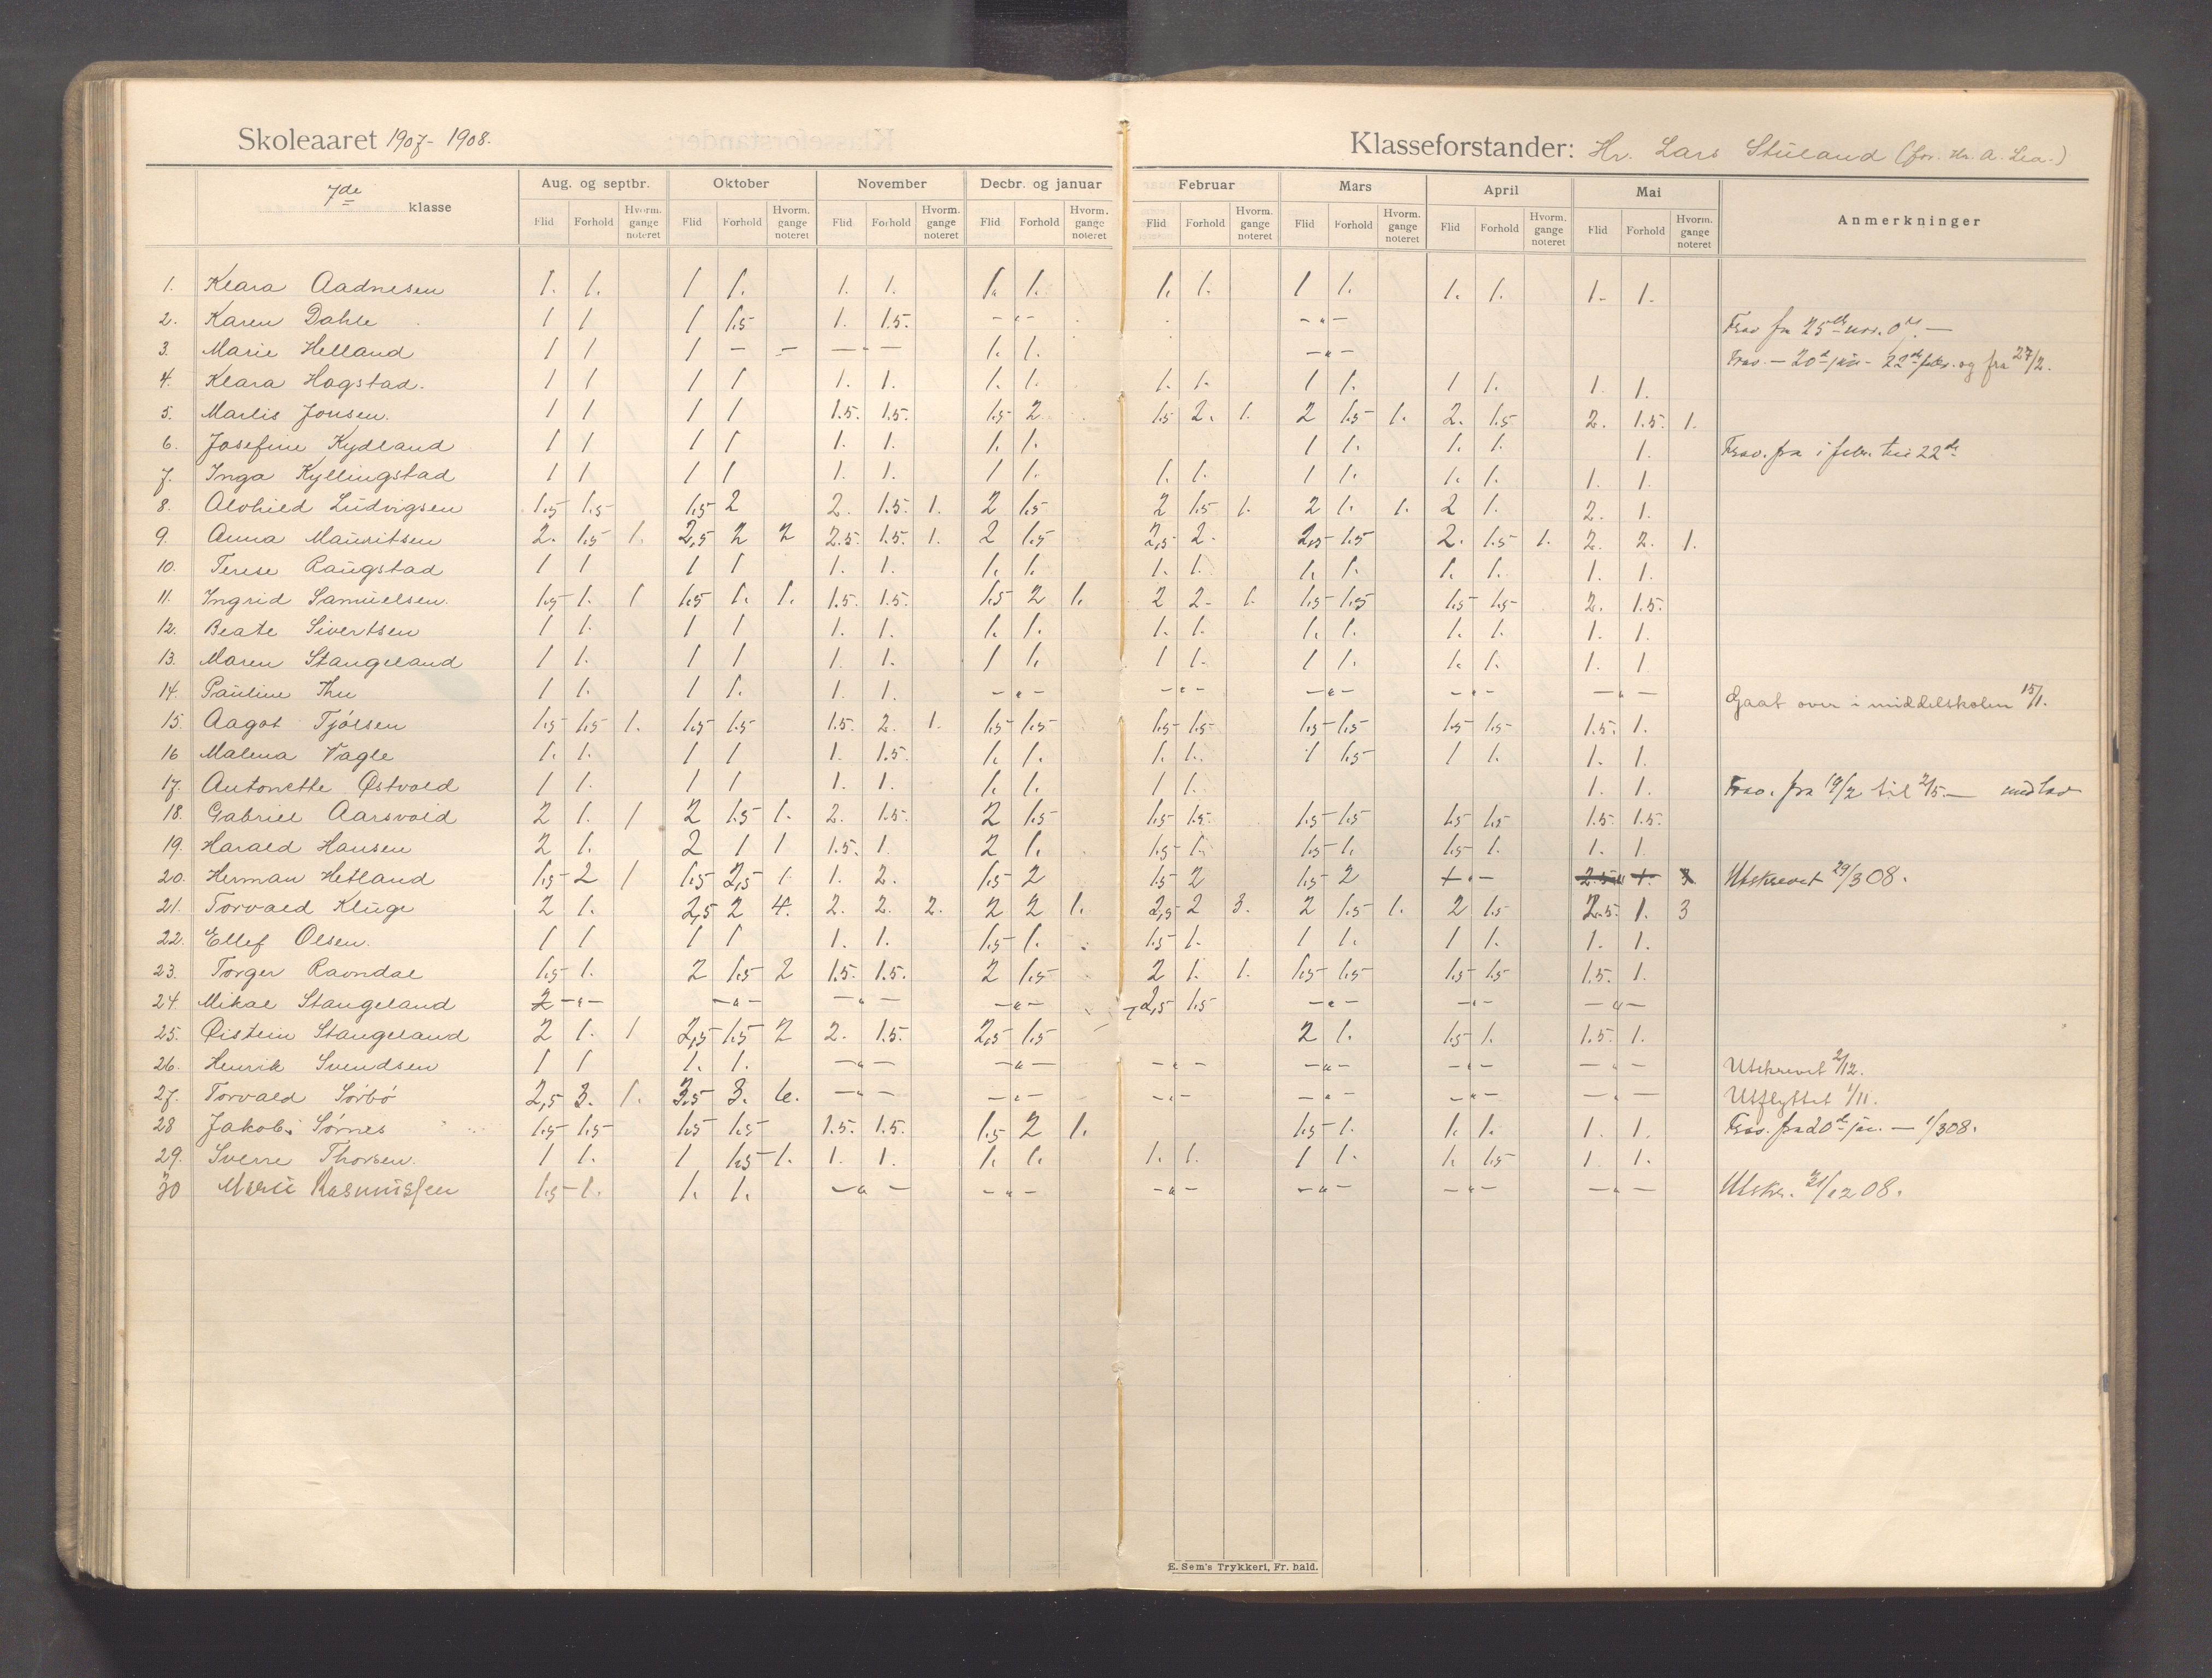 Skoleaaret 1907-1908.
Klasseforstander: Hr. Lars Stueland (for. Hr. A. Lea.)
7de klasse
Aug. og septbr. Oktober November Decbr. og januar Februar Mars April Mai
Flid Forhold Hvorm. gange noteret Flid Forhold Hvorm. gange noteret Flid Forhold Hvorm. gange noteret Flid Forhold Hvorm. gange noteret Flid Forhold Hvorm. gange noteret Flid Forhold Hvorm. gange noteret Flid Forhold Hvorm. gange noteret Flid Forhold Hvorm. gange noteret Anmerkninger
1. Klara Aadnesen 1. 1. 1 1. 1. 1. 1. 1. 1. 1. 1 1. 1. 1. 1. 1.
2. Karen Dahle 1 1 1 1.5 1. 1.5. -"- -"- Frav fra 25de nov.
3. Marie Helland 1 1 1 - - -"- 1. 1. -"- Frav. - 20de jan - 22de febr. og fra 27/2.
4. Klara Hogstad. 1 1 1 1 1. 1. 1. 1. 1. 1. 1 1. 1 1. 1. 1.
5. Marlis Jonsen. 1 1 1 1 1.5. 1.5. 1.5 2 1.5 2. 1. 2 1.5 1. 2. 1.5 2. 1.5. 1.
6. Josefine Kydland 1 1 1 1 1. 1. 1. 1. 1 1. 1. 1. 1. Frav. fra i febr. til 22de
7. Inga Kyllingstad 1 1 1 1 1. 1. 1 1. 1. 1. 1 1. 1. 1. 1. 1.
8. Alvhild Ludvigsen 1.5 1.5 1.5 2 2. 1.5. 1. 2 1.5 2 1.5 1. 2 1. 1. 2 1. 2. 1.
9. Anna Mauritsen 2. 1.5 1. 2,5 2 2 2.5. 1.5. 1. 2 1.5 2,5 2. 2,5 1.5 2. 1.5 1. 2. 2. 1.
10. Terese Raugstad 1 1 1 1 1. 1. 1. 1. 1. 1. 1. 1. 1. 1. 1. 1.
11. Ingrid Samuelsen. 1.5 1. 1 1.5 1. 1. 1.5. 1.5. 1.5 2 1. 2 2. 1. 1.5 1.5 1.5 1.5 2. 1.5.
12. Beate Sivertsen 1 1. 1 1 1. 1. 1. 1. 1. 1. 1. 1. 1. 1. 1. 1.
13. Maren Stangeland 1 1. 1 1 1. 1. 1 1. 1 1. 1 1. 1. 1. 1. 1
14. Pauline Thu 1 1. 1 1. 1. 1. -"- -"- -"- -"- -"- Gaat over i middelskolen 15/1.
15. Aagot Tjølsen 1.5 1.5 1. 1.5 1.5 1.5. 2. 1. 1.5 1.5 1.5 1.5 1.5 1.5 1.5 1.5 1.5. 1.
16 Malena Vagle 1. 1. 1 1 1. 1.5. 1. 1. 1. 1. 1 1.5 1 1. 1. 1.
17. Antonette Østvold 1 1. 1 1 1. 1. 1. 1. 1 1. 1. 1. Frav. fra 19/2 til 2/5.-
18. Gabriel Aarsvold 2 1. 1 2 1.5 1. 2. 1.5. 2 1.5 1.5 1.5. 1.5 1.5 1.5 1.5 1.5. 1.5.
19. Harald Hansen 2 1. 2 1 1 1.5. 1. 2 1. 1.5 1. 1.5 1. 1.5 1. 1. 1.
20. Herman Hetland 1.5 2 1 1.5 2,5 1. 1. 2. 1.5 2 1.5 2 1.5 2 Utskrevet 29/3 08.
21. Torvald Kluge 2 1. 2,5 2 4. 2. 2. 2. 2 2 1. 2,5 2 3. 2 1.5 1. 2 1.5 2.5. 1. 3
22. Ellef Olsen. 1 1 1 1 1. 1. 1.5 1. 1.5 1. 1 1. 1 1. 1. 1.
23. Torger Ravndal 1.5 1. 2 1.5 2 1.5. 1.5. 2 1.5 2 1. 1. 1.5 1.5 1.5 1.5 1.5. 1.
24. Mikal Stangeland 2 -"- -"- -"- -"- 2,5 1.5 -"- -"- -"-
25. Øistein Stangeland 2 1. 1 2,5 1.5 2 2. 1.5. 2,5 1.5 2 1. 1.5 1. 1.5. 1.
26. Henrik Svendsen 1 1 1. 1. -"- -"- -"- -"- -"- -"- Utskrevet 2/12.
27. Torvald Sørbø 2,5 3. 1. 3.5 3. 6. -"- -"- -"- -"- -"- -"- Utflyttet 1/11.
28 Jakob Sørnes 1.5 1.5 1.5 1.5 1.5. 1.5. 1.5 2 1. 1.5 1. 1. 1. 1. 1. Frav. fra 20de jan. - 1/3 08.
29. Sverre Thorsen. 1 1. 1 1.5 1. 1. 1. 1. 1. 1. 1. 1 1. 1. 1.5 1. 1.
30 Marie Rasmussen 1.5 1. 1. 1. -"- -"- -"- -"- -"- -"- Utskr. 31/12 08.
E. Sem's Trykkeri, Fr. hald.